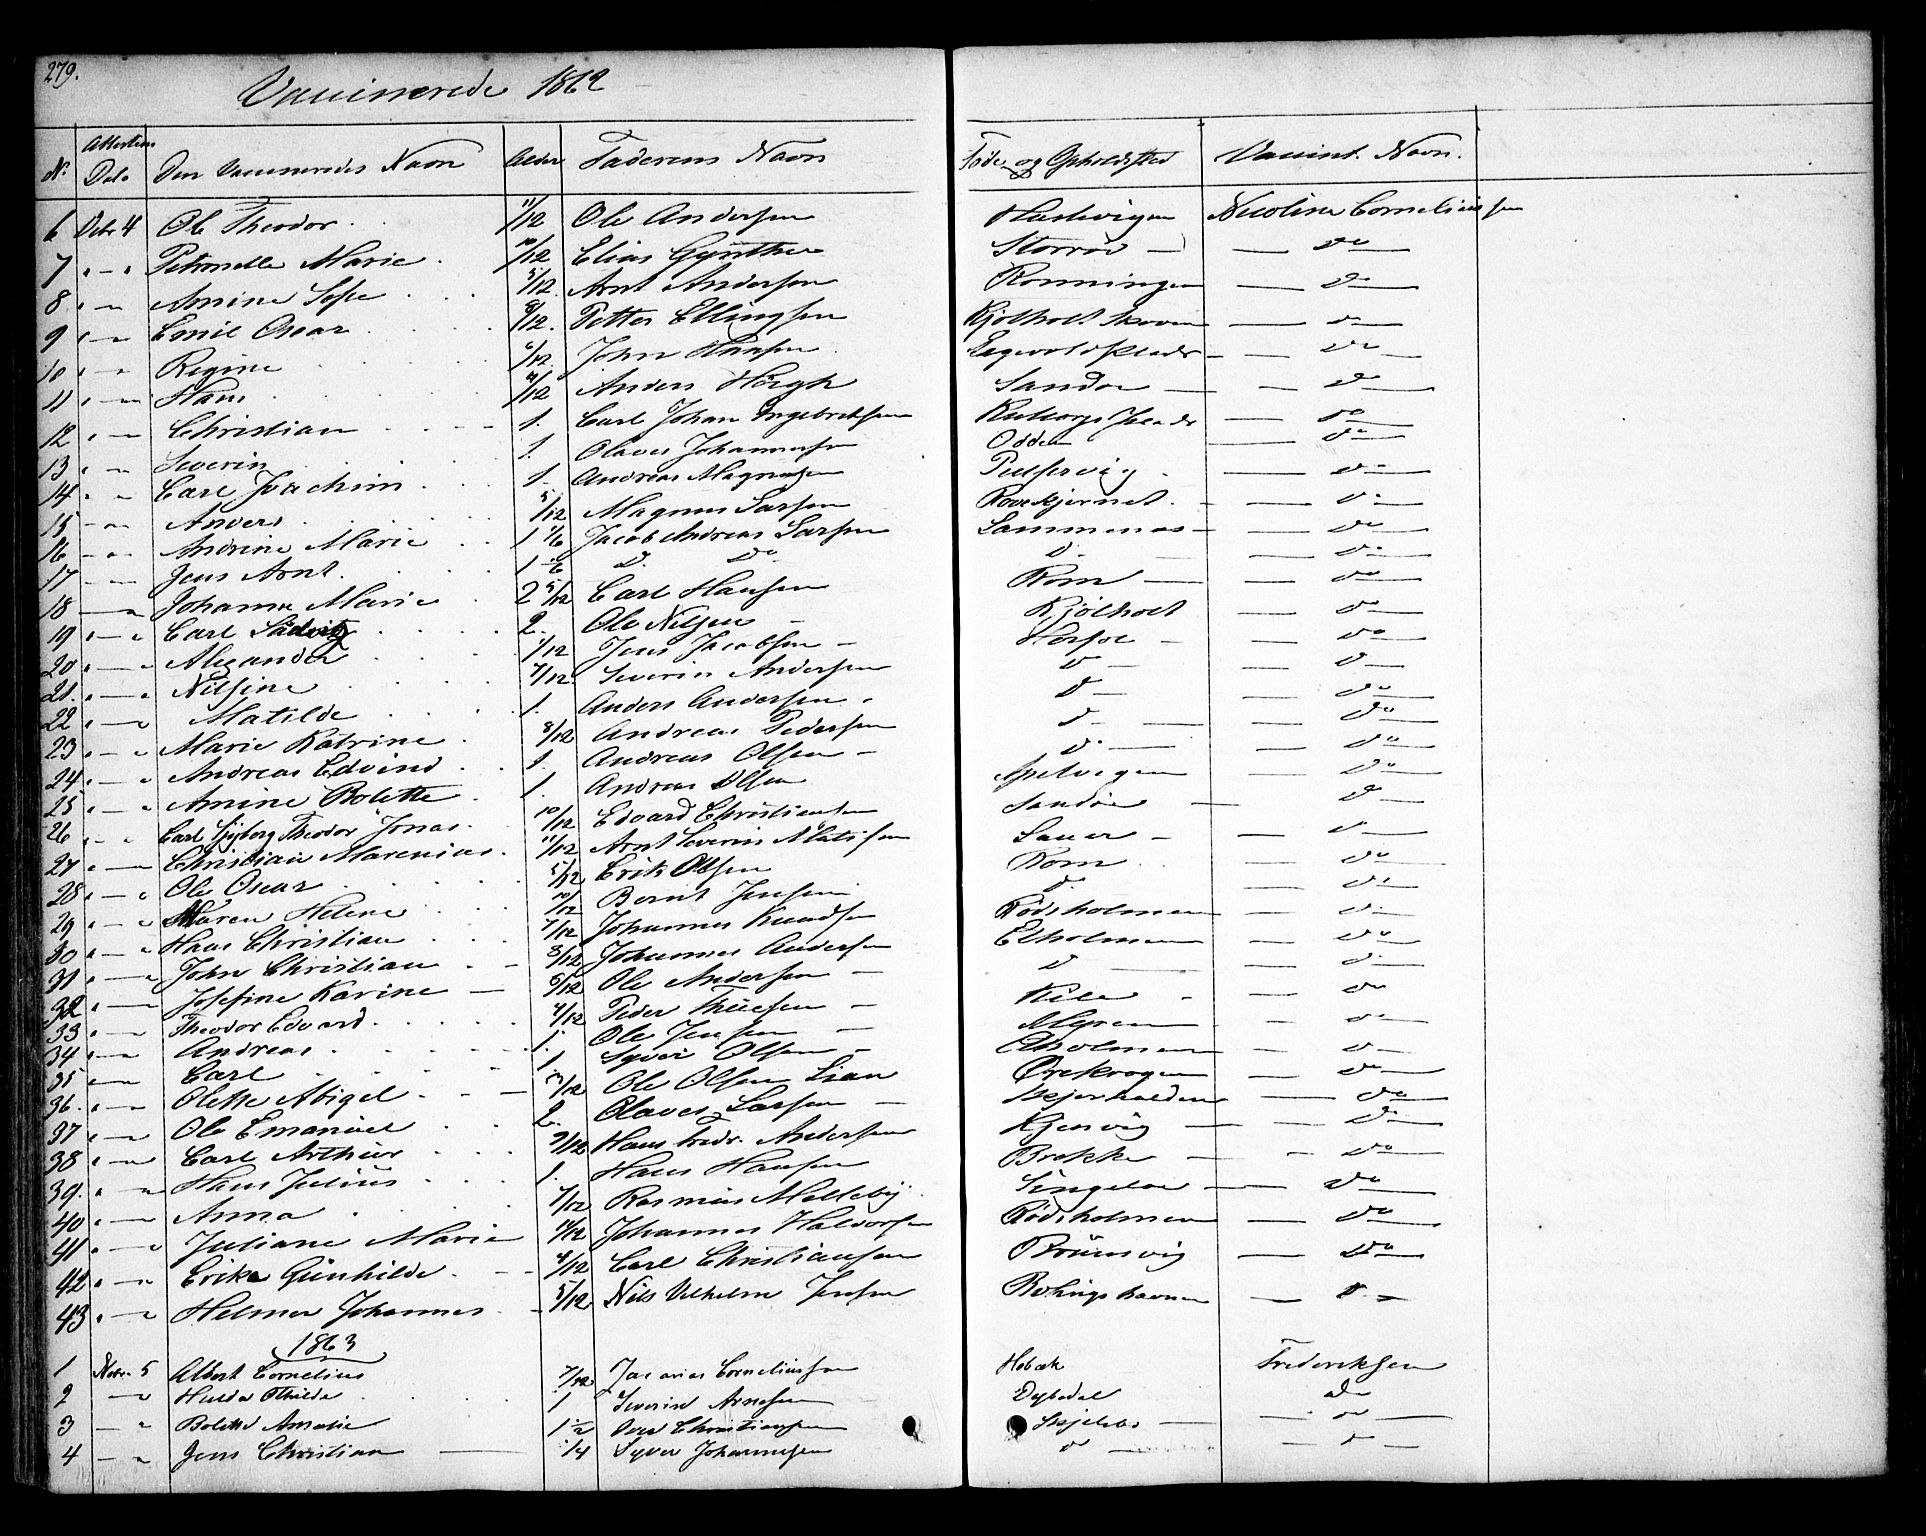 279.
Vaccinerede 1862
No. Attestens Dato Den Vaccineredes Navn Alder Faderens Navn Føde og Opholdssted Vaccint. Navn.
6 Octbr 4 Ole Theodor 11/12 Ole Andersen Nicoline Corneliussen
7 " — " Petronelle Marie 10/12 Elias Gynther Storrød do
8 " — " Amine Sofie 5/12 Arnt Andersen Rønningen do
9 " — " Emil Oscar 8/12. Petter Ellingsen Kjølholt Skoven do
10 " — " Regine 6/12 John Hansen do
11 " — " Hans 11/12 Anders Høegh Sandøe do
12 " — " Christian 1. Carl Johan Ingebrethsen do
13 " — " Severin 1. Olaves Johannessen Odden do
14 " — " Carl Joachim 1. Andreas Magnusen Pulservig do
15 — " Anders 5/12 Magnus Larsen Rovekjernet do
16 — " Andrine Marie 1 1/6 Jacob Andreas Larsen Lammenes do
17 — " Jens Arnt. 1 1/6 do do do do
18 — " Johanne Marie 2 5/12 Carl Hansen Rom do
19 " — " Carl Ludvig 2. Ole Nilsen Kjølholt do
20 " — " Alexander 1/12 Jens Jacobsen Herføl do
21. " — " Nilsine 7/12 Severin Andersen do do
22 " — " Matilde 1. Anders Andersen do do
23 " — " Marie Katrine 8/12 Andreas Pedersen do do
24 " — " Andreas Edvind 1. Andreas Olsen do do
25 " — " Amine Bolette 1. Andreas Olsen Spelvigen do
26 " — " Carl Sjyberg Theodor Jonas 10/12 Edvard Christiansen Sandøe do
27 " — " Christian Marenius 11/12 Arnt Severin Matisen Lauer do
28 " — " Ole Oscar 5/12 Erik Olsen Rom do
29 " — " Maren Helene 10/12 Bernt Jensen do do
30 " — " Hans Christian 7/12 Johannes Knudsen Rødsholmen do
31 " — " John Christian 3/12 Johannes Andersen Edholmen do
32 " — " Josefine Karine 5/12 Ole Andersen do do
33 " — " Theodor Edvard 4/12 Peder Thuesen Kile do
34 " — " Andreas 1. Ole Jensen Myren do
35 " — " Carl 1 Syver Olsen Edholmen do
36. " — " Olette Abigel /12 Ole Olsen Lian Ørekrogen do
37 " — " Ole Emanuel 2. Olaves Larsen Skjærhalden do
38 " — " Carl Arthur 9/12 Hans Fredr. Andersen Kjenvig do
39. " — " Hans Julius 1. Hans Hansen Brekke do
40 " — " Anna 7/12 Rasmus Melleby Singeløe do
41 " — " Juliane Marie 11/12 Johannes Halvorsen Rødsholmen do
42 " — " Erika Gunhilde 4/12 Carl Christiansen Brünsvig do
43 " — " Helmer Johannes 5/12 Nils Vilhelm Jensen Bølingshavnen do
1863
1 Novbr. 5 Albert Cornelius 7/12 Zacarias Corneliussen Holbæk Frederiksen
2 — " Hulda Othilde 1 Severin Arnesen Dybedal do
3 — " Bolette Amalie 1 1/2 Christiansen Skjelsbo do
4 — " Jens Christian 1/4 Syver Johannesen do do